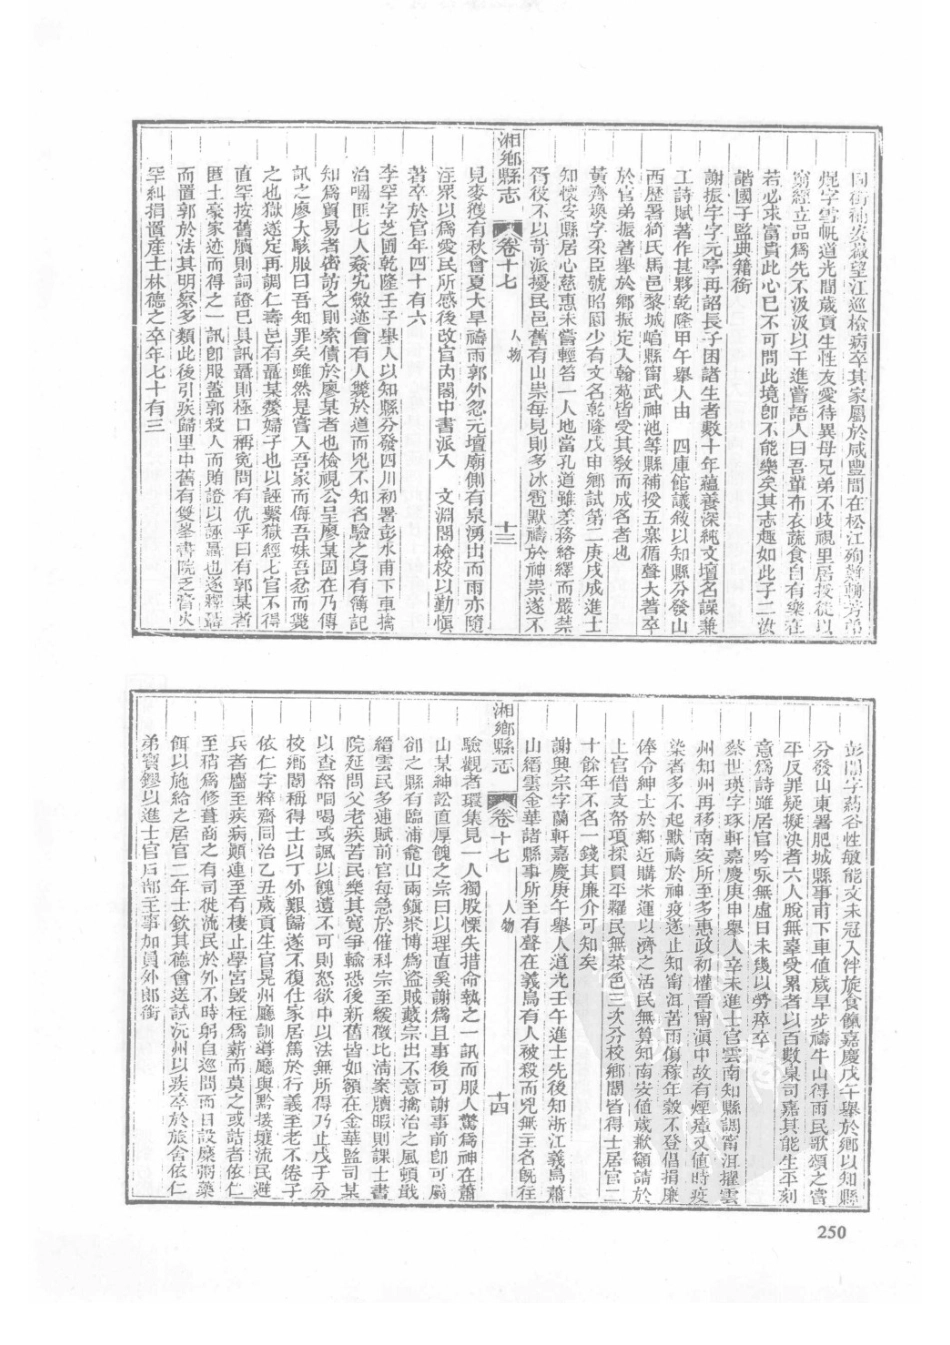 同衔補安徽望江巡檢病卒其家屬於咸豐間在松江殉難
焜字雲帆道光間歲貢生性友愛待異母兄弟不歧視里居授徒以
窮經立品爲先不汲汲以干進嘗語人曰吾輩布衣蔬食自有樂在
若必求富貴此心已不可問此境卽不能樂矣其志趣如此子二汝
諧國子監典籍銜
謝振宇字元亭再詔長子困諸生者數十年蘊養深純文壇名譟兼
工詩賦著作甚夥乾隆甲午舉人由 四庫館議敘以知縣分發山
西歷署猗氏馬邑黎城崞縣甯武神池等縣補授五寨循聲大著卒
於官弟振著舉於鄉振定入翰苑皆受其敎而成名者也
黃齊煥字釆臣號昭圓少有文名乾隆戊申鄉試第二庚戌成進士
知懷安縣居心慈惠未嘗輕笞一人地當孔道雖差務絡繹而嚴禁
胥役不以苛派擾民邑舊有山祟每見則多冰雹默禱於神祟遂不
湘鄉縣志 卷十七 人物 十三
見麥獲有秋會夏大旱禱雨郭外忽元壇廟側有泉湧出而雨亦隨
注眾以爲愛民所感後改官內閣中書派入 文淵閣檢校以勤愼
著卒於官年四十有六
李罕字芝圃乾隆壬子舉人以知縣分發四川初署彭水甫下車擒
治嘓匪七人姦宄斂迹會有人斃於道而兇不知名驗之身有簿記
知爲貿易者密訪之則索債於廖某者也檢視公呈廖某固在乃傳
訊之廖大駭服曰吾知罪矣雖然是嘗入吾家而侮吾妹吾忿而斃
之也獄遂定再調仁壽邑有聶某嫠婦子也以誣繫獄經七官不得
直罕按舊牘則詞證已具訊聶則極口稱寃問有仇乎曰有郭某者
匿土豪家迹而得之一訊卽服蓋郭殺人而賄證以誣聶也遂釋聶
而置郭於法其明察多類此後引疾歸里中舊有雙峯書院乏膏火
罕糾捐置產士林德之卒年七十有三
彭開字葯谷性敏能文未冠入泮旋食餼嘉慶戊午舉於鄉以知縣
分發山東署肥城縣事甫下車値歲旱步禱牛山得雨民歌頌之當
平反罪疑擬決者六人脫無辜受累者以百數臬司嘉其能生平刻
意爲詩雖居官吟咏無虛日未幾以勞瘁卒
蔡世瑛字琢軒嘉慶庚申舉人辛未進士官雲南知縣調甯洱擢雲
州知州再移南安所至多惠政初權晋甯滇中故有煙瘴又值時疫
染者多不起默禱於神疫遂止知甯洱苦雨傷稼年穀不登倡捐廉
俸令紳士於鄰近購米運以濟之活民無算知南安值歲歉籲請於
上官借支帑項採買平糶民無菜色三次分校鄉闈皆得士居官二
十餘年不名一錢其廉介可知矣
謝興宗字蘭軒嘉慶庚午舉人道光壬午進士先後知浙江義烏蕭
山縉雲金華諸縣事所至有聲在義烏有人被殺而兇無主名旣往
湘鄉縣志 卷十七 人物 十四
驗觀者環集見一人獨股慄失措命執之一訊而服人驚爲神在蕭
山某紳訟直厚餽之宗曰以理直奚謝爲且事後可謝事前卽可屬
卻之縣有臨浦龕山兩鎮聚博爲盜賊藪宗出不意擒治之風頓戢
縉雲民多逋賦前官每急於催科宗至緩徵比淸案牘暇則課士書
院延問父老疾苦民樂其寛爭輸恐後新舊皆如額在金華監司某
以查帑喝嚇或諷以餽遺不可則怒欲中以法無所得乃止戊子分
校鄉闈稱得士以丁外艱歸遂不復仕家居篤於行義至老不倦子
依仁字粹齋同治乙丑歲貢生官晃州廳訓導廳與黔接壤流民避
兵者麕至疾病顚連至有棲止學宮毀柱爲薪而莫之或詰者依仁
至稍爲修葺商之有司徙流民於外不時躬自巡問而日設糜粥藥
餌以施給之居官二年士欽其德會送試沅州以疾卒於旅舍依仁
弟寶鏐以進士官戶部主事加員外郎銜
250